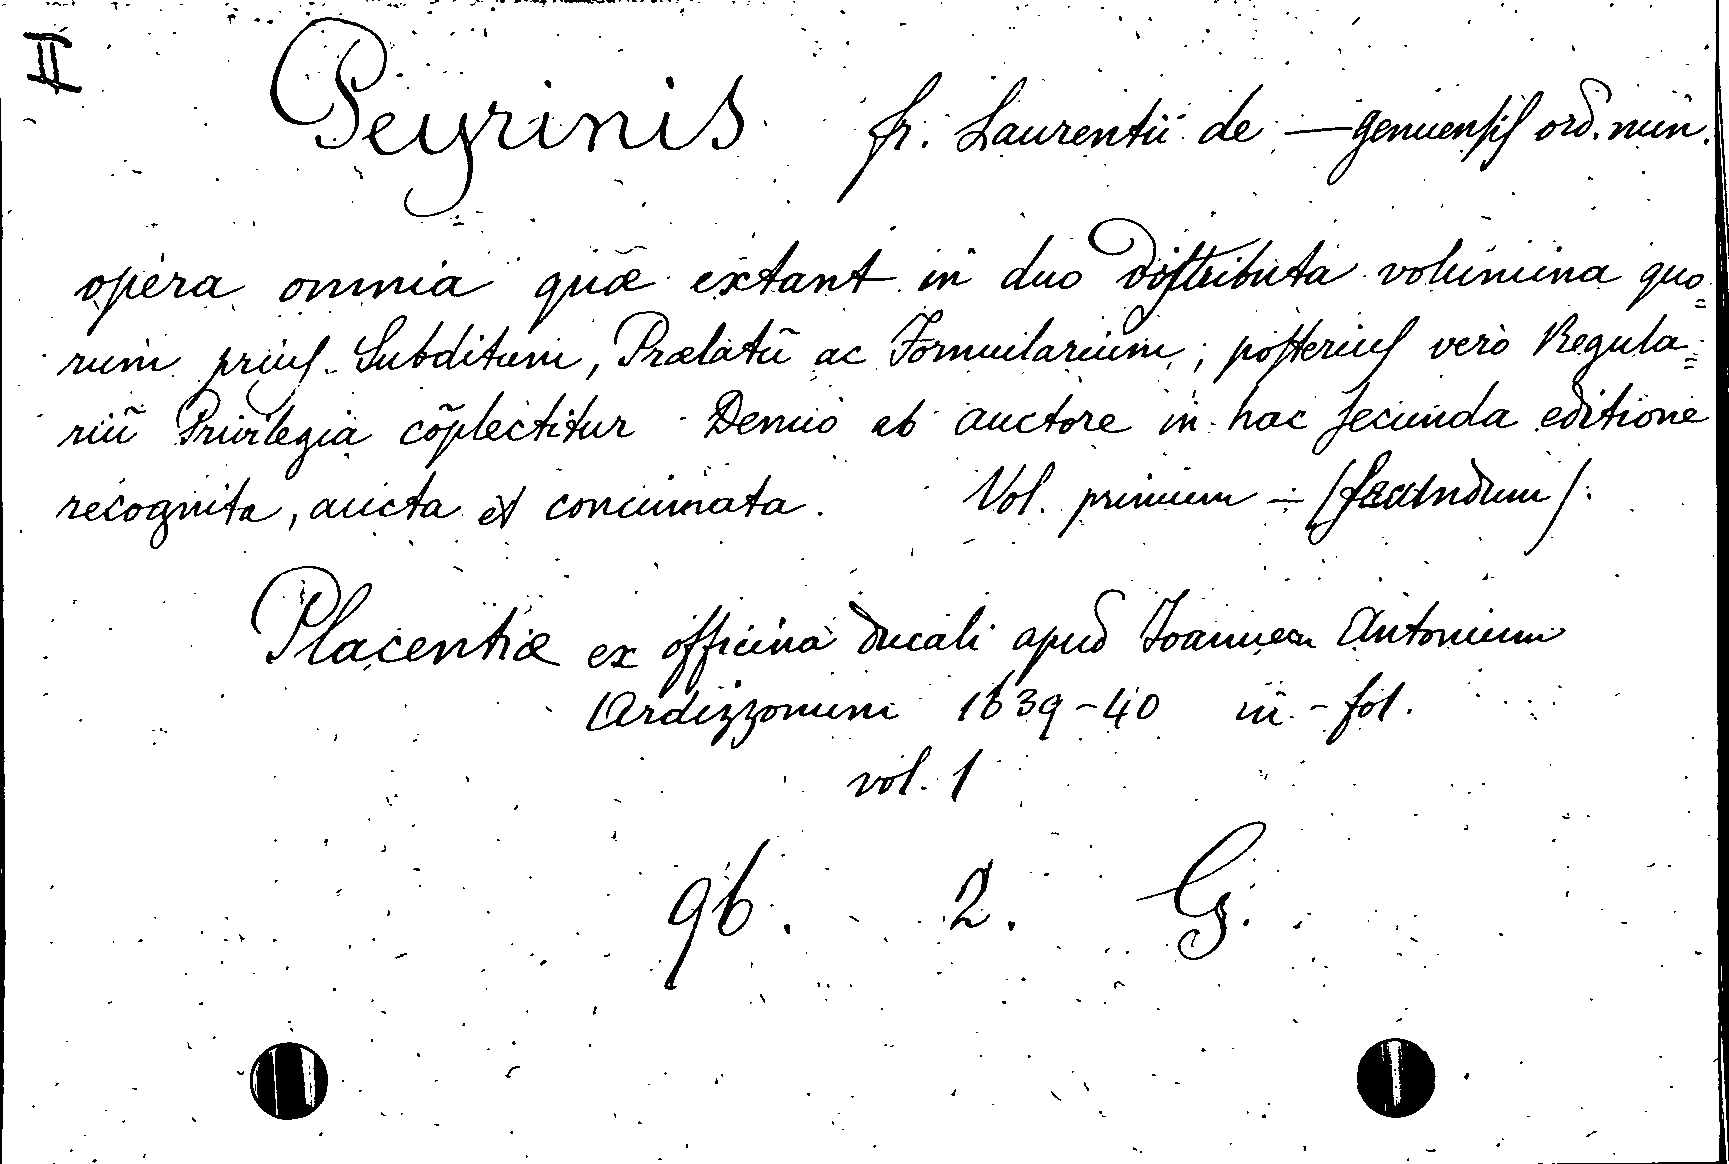 II
Peyrinis fr. Laurentii de — genuensis ord. min.
opera omnia quæ extant in duo distributa volumina quo=
rum prius Subditum, Prælatū ac Formularium; posterius verò Regula=
riū Privilegia cōplectitur Denuo ab auctore in hac secunda editione
recognita, aucta et concinnata. Vol. primum ÷ (secundum).
Placentiæ ex officina ducali apud Joannem Antonium
Ardizzonum 1639-40 in-fol.
vol. 1
96. 2. G.